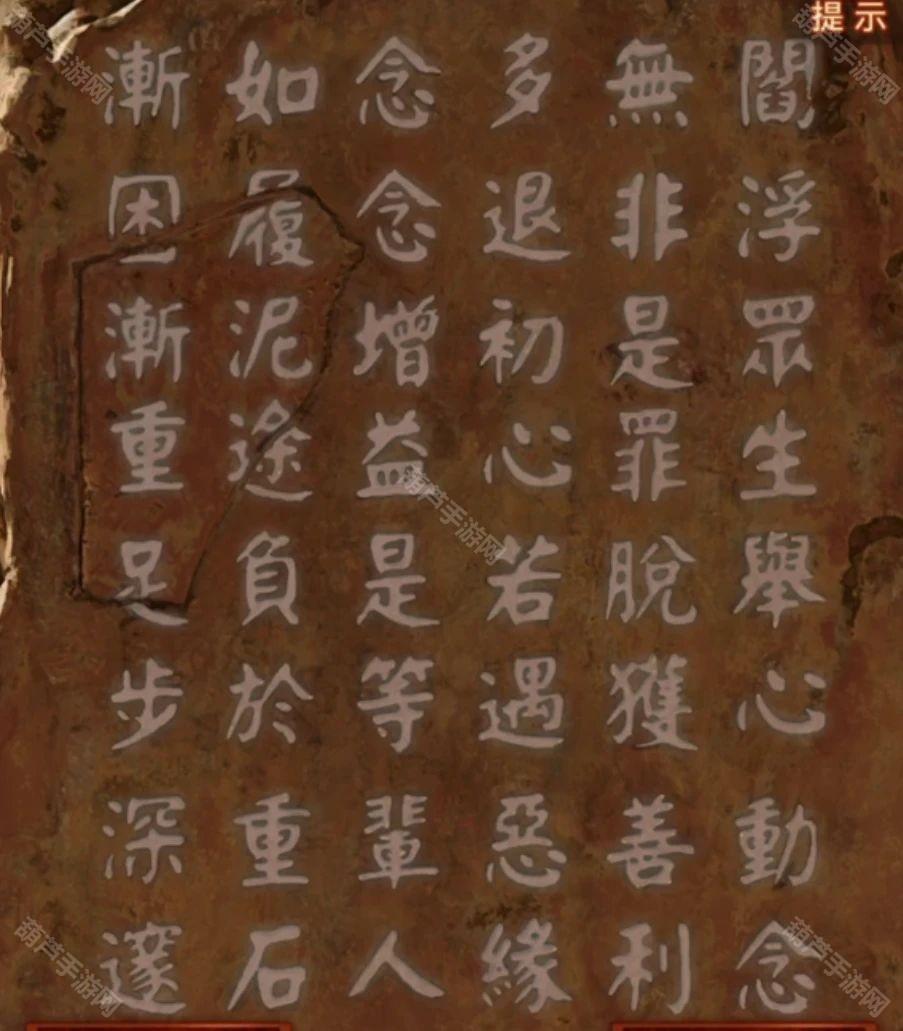 提示
閻浮眾生舉心動念
無非是罪脫獲善利
多退初心若遇惡緣
念念增益是等輩人
如履泥途負於重石
漸困漸重足步深邃
葫芦手游网
葫芦手游网
葫芦手游网
葫芦手游网
葫芦手游网